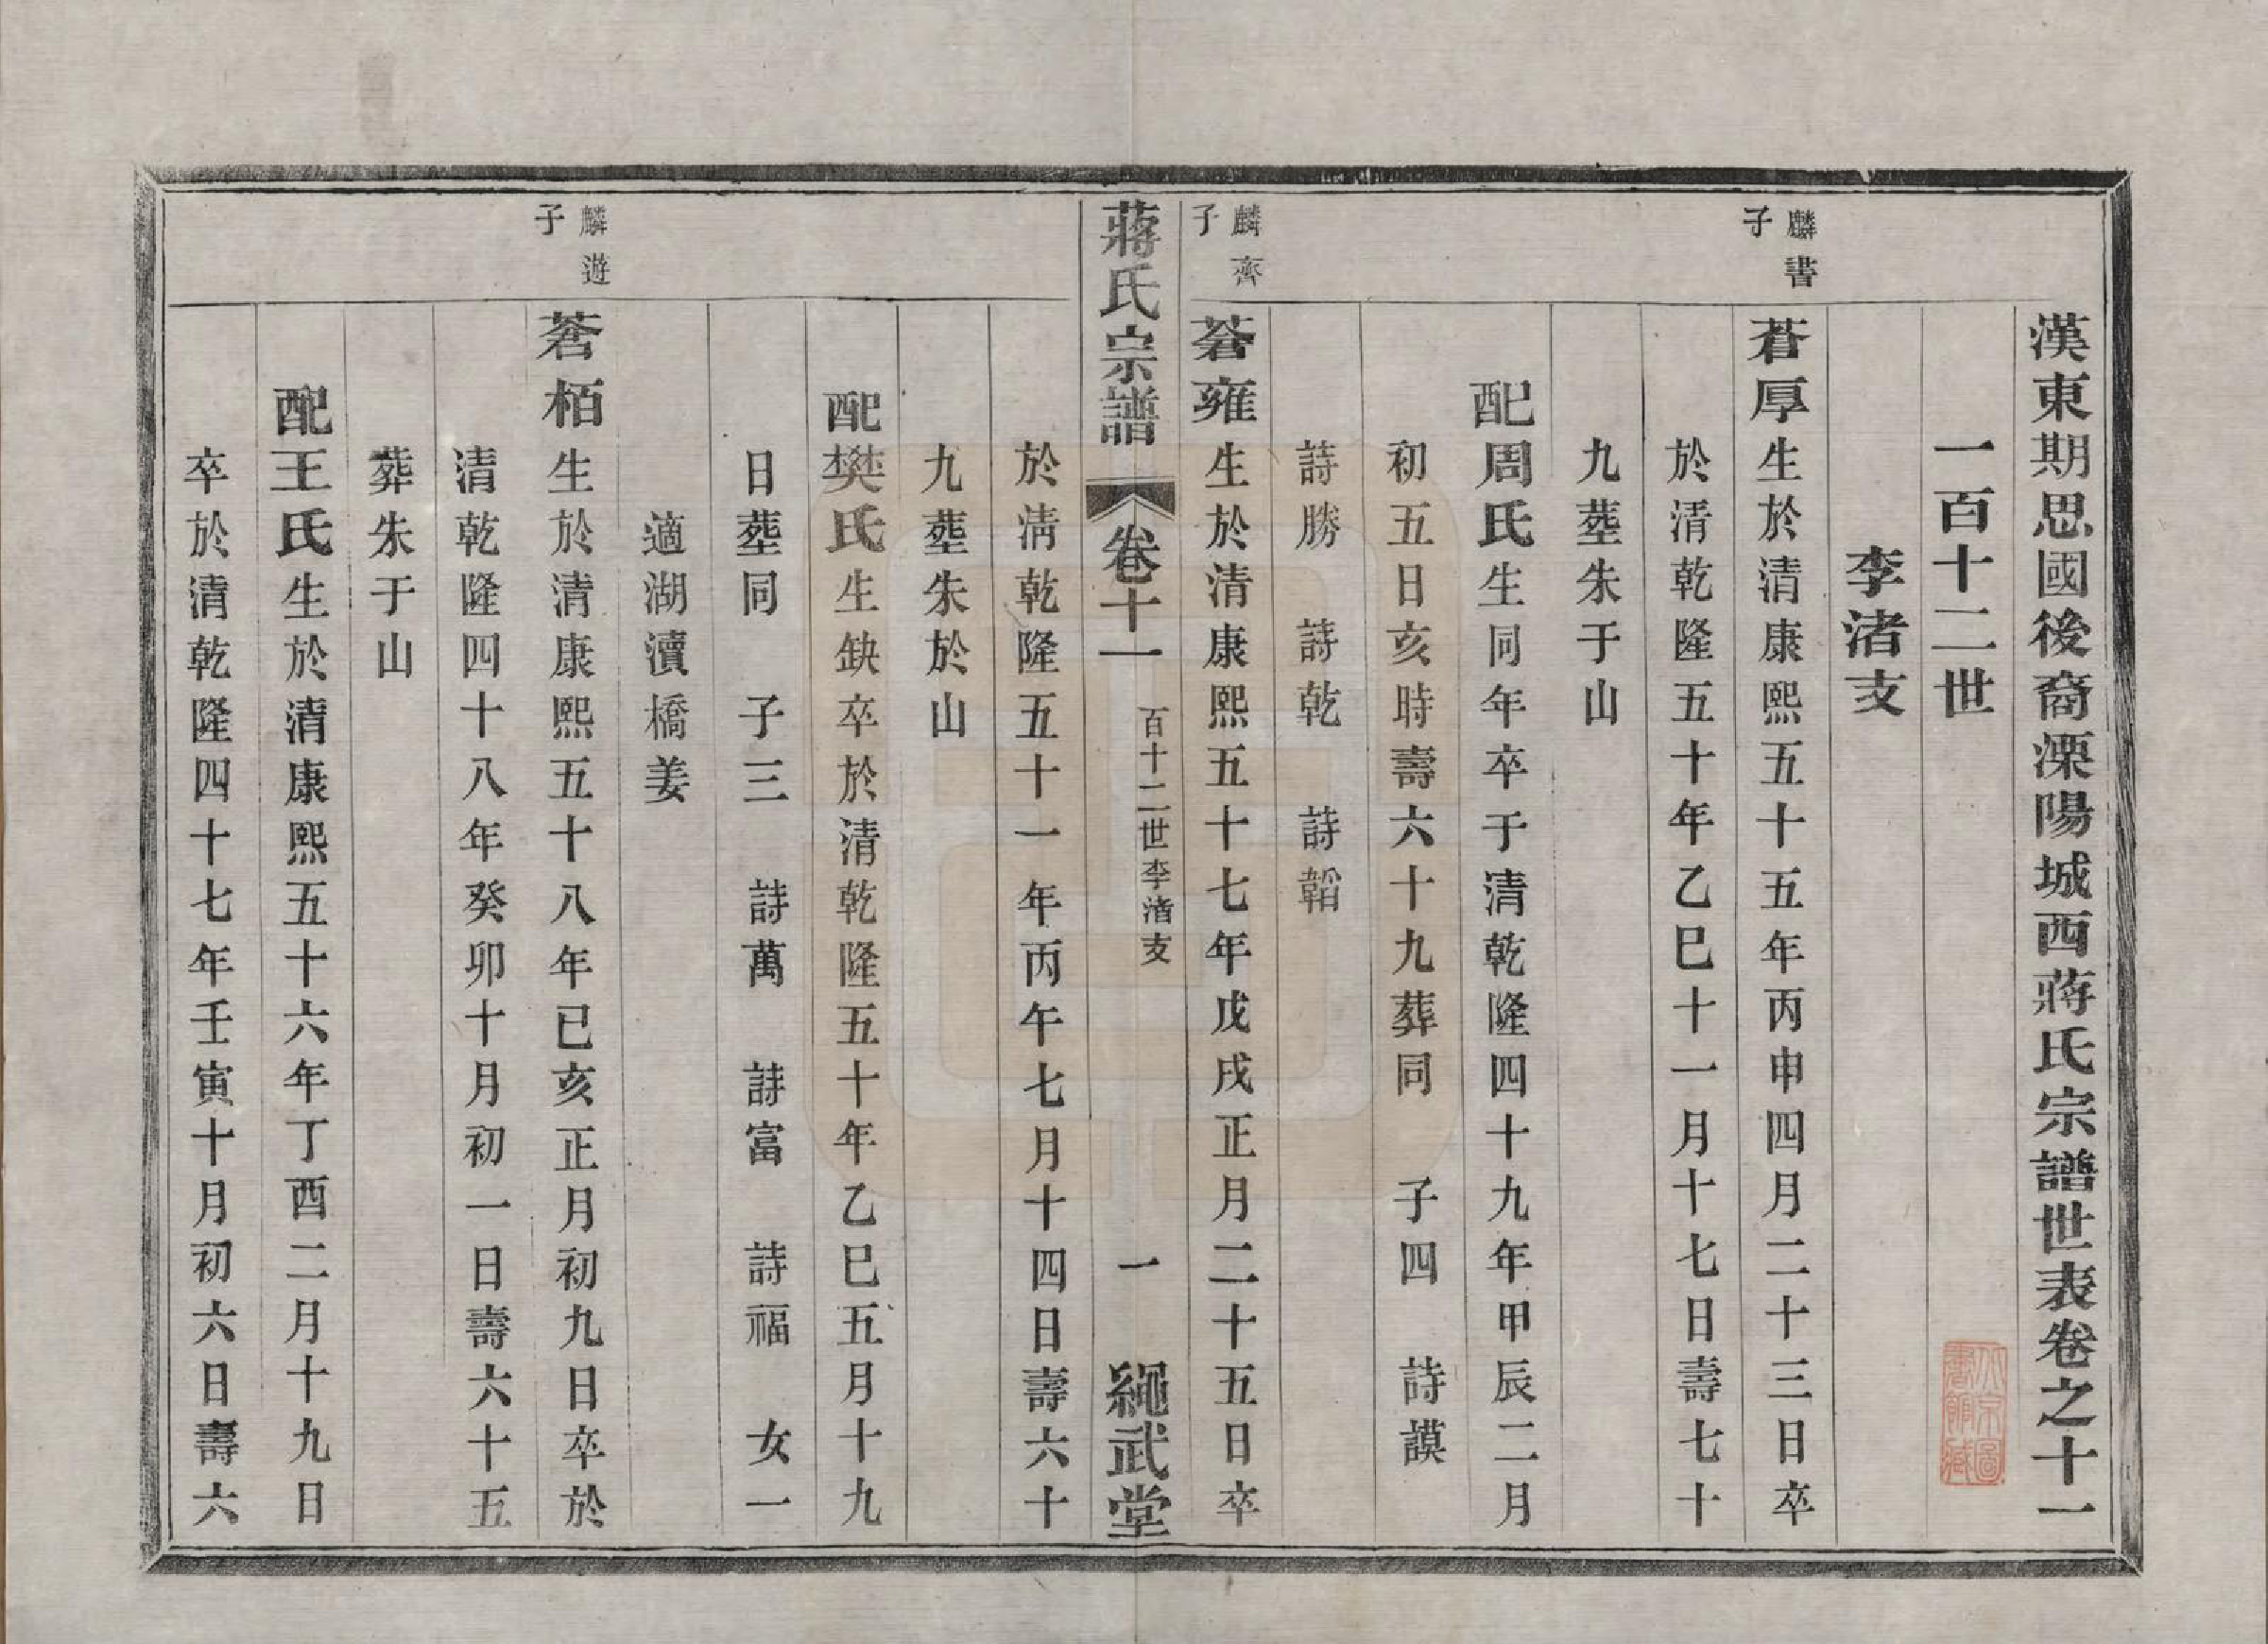 漢東期思國後裔溧陽城西蔣氏宗譜世表卷之十一
一百十二世
李渚支
麟書子
蒼厚生於清康熙五十五年丙申四月二十三日卒
於清乾隆五十年乙巳十一月十七日壽七十
九塟朱于山
配周氏生同年卒于清乾隆四十九年甲辰二月
初五日亥時壽六十九葬同 子四 詩謨
詩勝 詩乾 詩韜
麟齊子
蒼雍生於清康熙五十七年戊戌正月二十五日卒
蔣氏宗譜 卷十一 百十二世李渚支 一 繩武堂
於清乾隆五十一年丙午七月十四日壽六十
九塟朱於山
配樊氏生缺卒於清乾隆五十年乙巳五月十九
日塟同 子三 詩萬 詩富 詩福 女一
適湖瀆橋姜
麟遊子
蒼栢生於清康熙五十八年已亥正月初九日卒於
清乾隆四十八年癸卯十月初一日壽六十五
葬朱于山
配王氏生於清康熙五十六年丁酉二月十九日
卒於清乾隆四十七年壬寅十月初六日壽六
北京圖書館藏